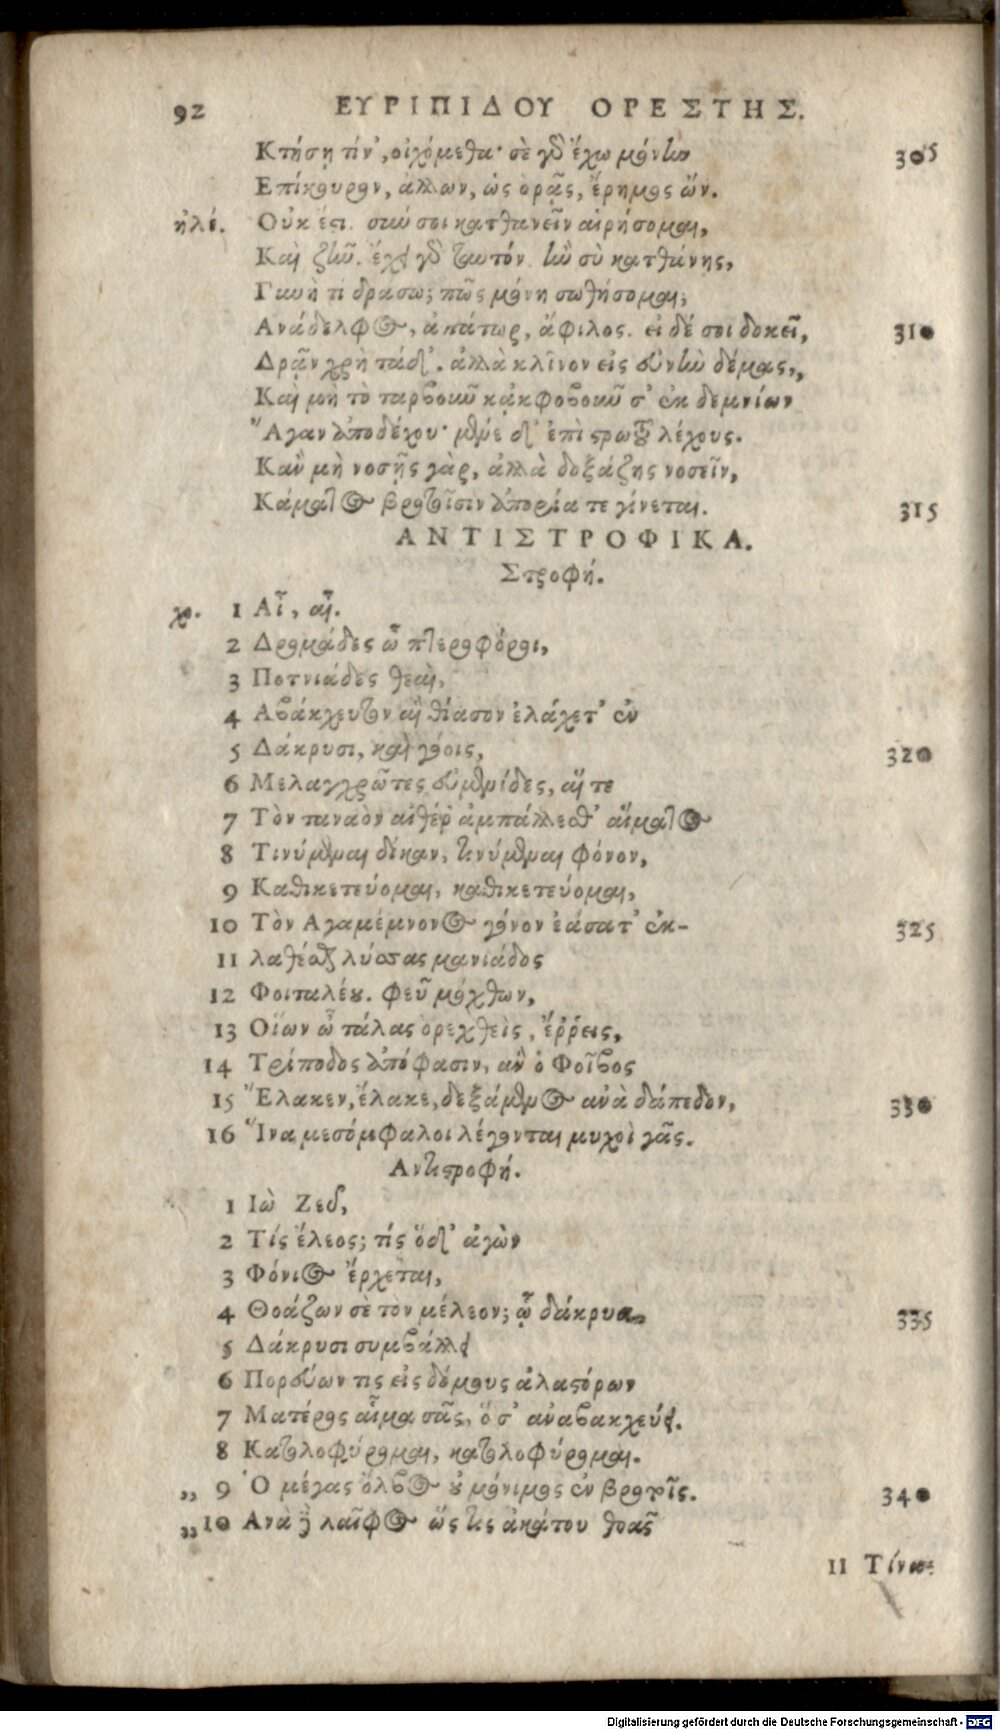 92 ΕΥΡΙΠΙΔΟΥ ΟΡΕΣΤΗΣ.
Κτήσῃ τίν', οἰχόμεθα· σὲ γὸ ἔχω μόνην 305
Επίκουρον, ἄλλων, ὡς ὁρᾷς, ἔρημος ὤν.
ηλέ. Οὐκ ἔστι. σὺν σοι κατθανεῖν αἱρήσομαι,
Καὶ ζῆν. ἔχει γὸ ταυτόν. ἢν σὺ κατθάνῃς,
Γυνὴ τί δράσω; πῶς μόνη σωθήσομαι;
Ανάδελφος, ἀπάτωρ, ἄφιλος. εἰ δέ σοι δοκεῖ, 310
Δρᾷν χρὴ τάδ'. ἀλλὰ κλῖνον εἰς εὐνὴν δέμας,
Καὶ μὴ τὸ ταρβοῦν κἀκφοβοῦν σ' ἐκ δεμνίων
Ἄγαν ἀποδέχου· μένε δ' ἐπὶ στρωτοῦ λέχους.
Κἂν μὴ νοσῇς γὰρ, ἀλλὰ δοξάζῃς νοσεῖν,
Κάματος βροτοῖσιν ἀπορία τε γίνεται. 315
ΑΝΤΙΣΤΡΟΦΙΚΑ.
Στροφή.
χο. 1 Αἶ, αἶ.
2 Δρομάδες ὦ πτεροφόροι,
3 Ποτνιάδες θεαὶ,
4 Αβάκχευτον αἳ θίασον ἐλάχετ' ἐν
5 Δάκρυσι, καὶ γόοις, 320
6 Μελαγχρῶτες εὐμενίδες, αἵ τε
7 Τὸν ταναὸν αἰθέρ' ἀμπάλλεσθ' αἵματος
8 Τινύμεναι δίκαν, τινύμεναι φόνον,
9 Καθικετεύομαι, καθικετεύομαι,
10 Τὸν Αγαμέμνονος γόνον ἐάσατ' ἐκ-
11 λαθέσθαι λύσσας μανιάδος 325
12 Φοιταλέου. φεῦ μόχθων,
13 Οἵων ὦ τάλας ὀρεχθεὶς, ἔῤῥεις,
14 Τρίποδος ἀπόφασιν, ἂν ὁ Φοῖβος
15 Ἔλακεν, ἔλακε, δεξάμενος ἀνὰ δάπεδον, 330
16 Ἵνα μεσόμφαλοι λέγονται μυχοὶ γᾶς.
Αντιστροφή.
1 Ιὼ Ζεῦ,
2 Τίς ἔλεος; τίς ὅδ' ἀγὼν
3 Φόνιος ἔρχεται,
4 Θοάζων σὲ τὸν μέλεον; ᾧ δάκρυα 335
5 Δάκρυσι συμβάλλει
6 Πορεύων τις εἰς δόμους ἀλαστόρων
7 Ματέρος αἷμα σᾶς, ὅ σ' ἀναβακχεύει.
8 Κατολοφύρομαι, κατολοφύρομαι.
„ 9 Ὁ μέγας ὄλβος οὐ μόνιμος ἐν βροτοῖς. 340
„ 10 Ανὰ δὲ λαῖφος ὥς τις ἀκάτου θοᾶς
11 Τίνα-
Digitalisierung gefördert durch die Deutsche Forschungsgemeinschaft - DFG